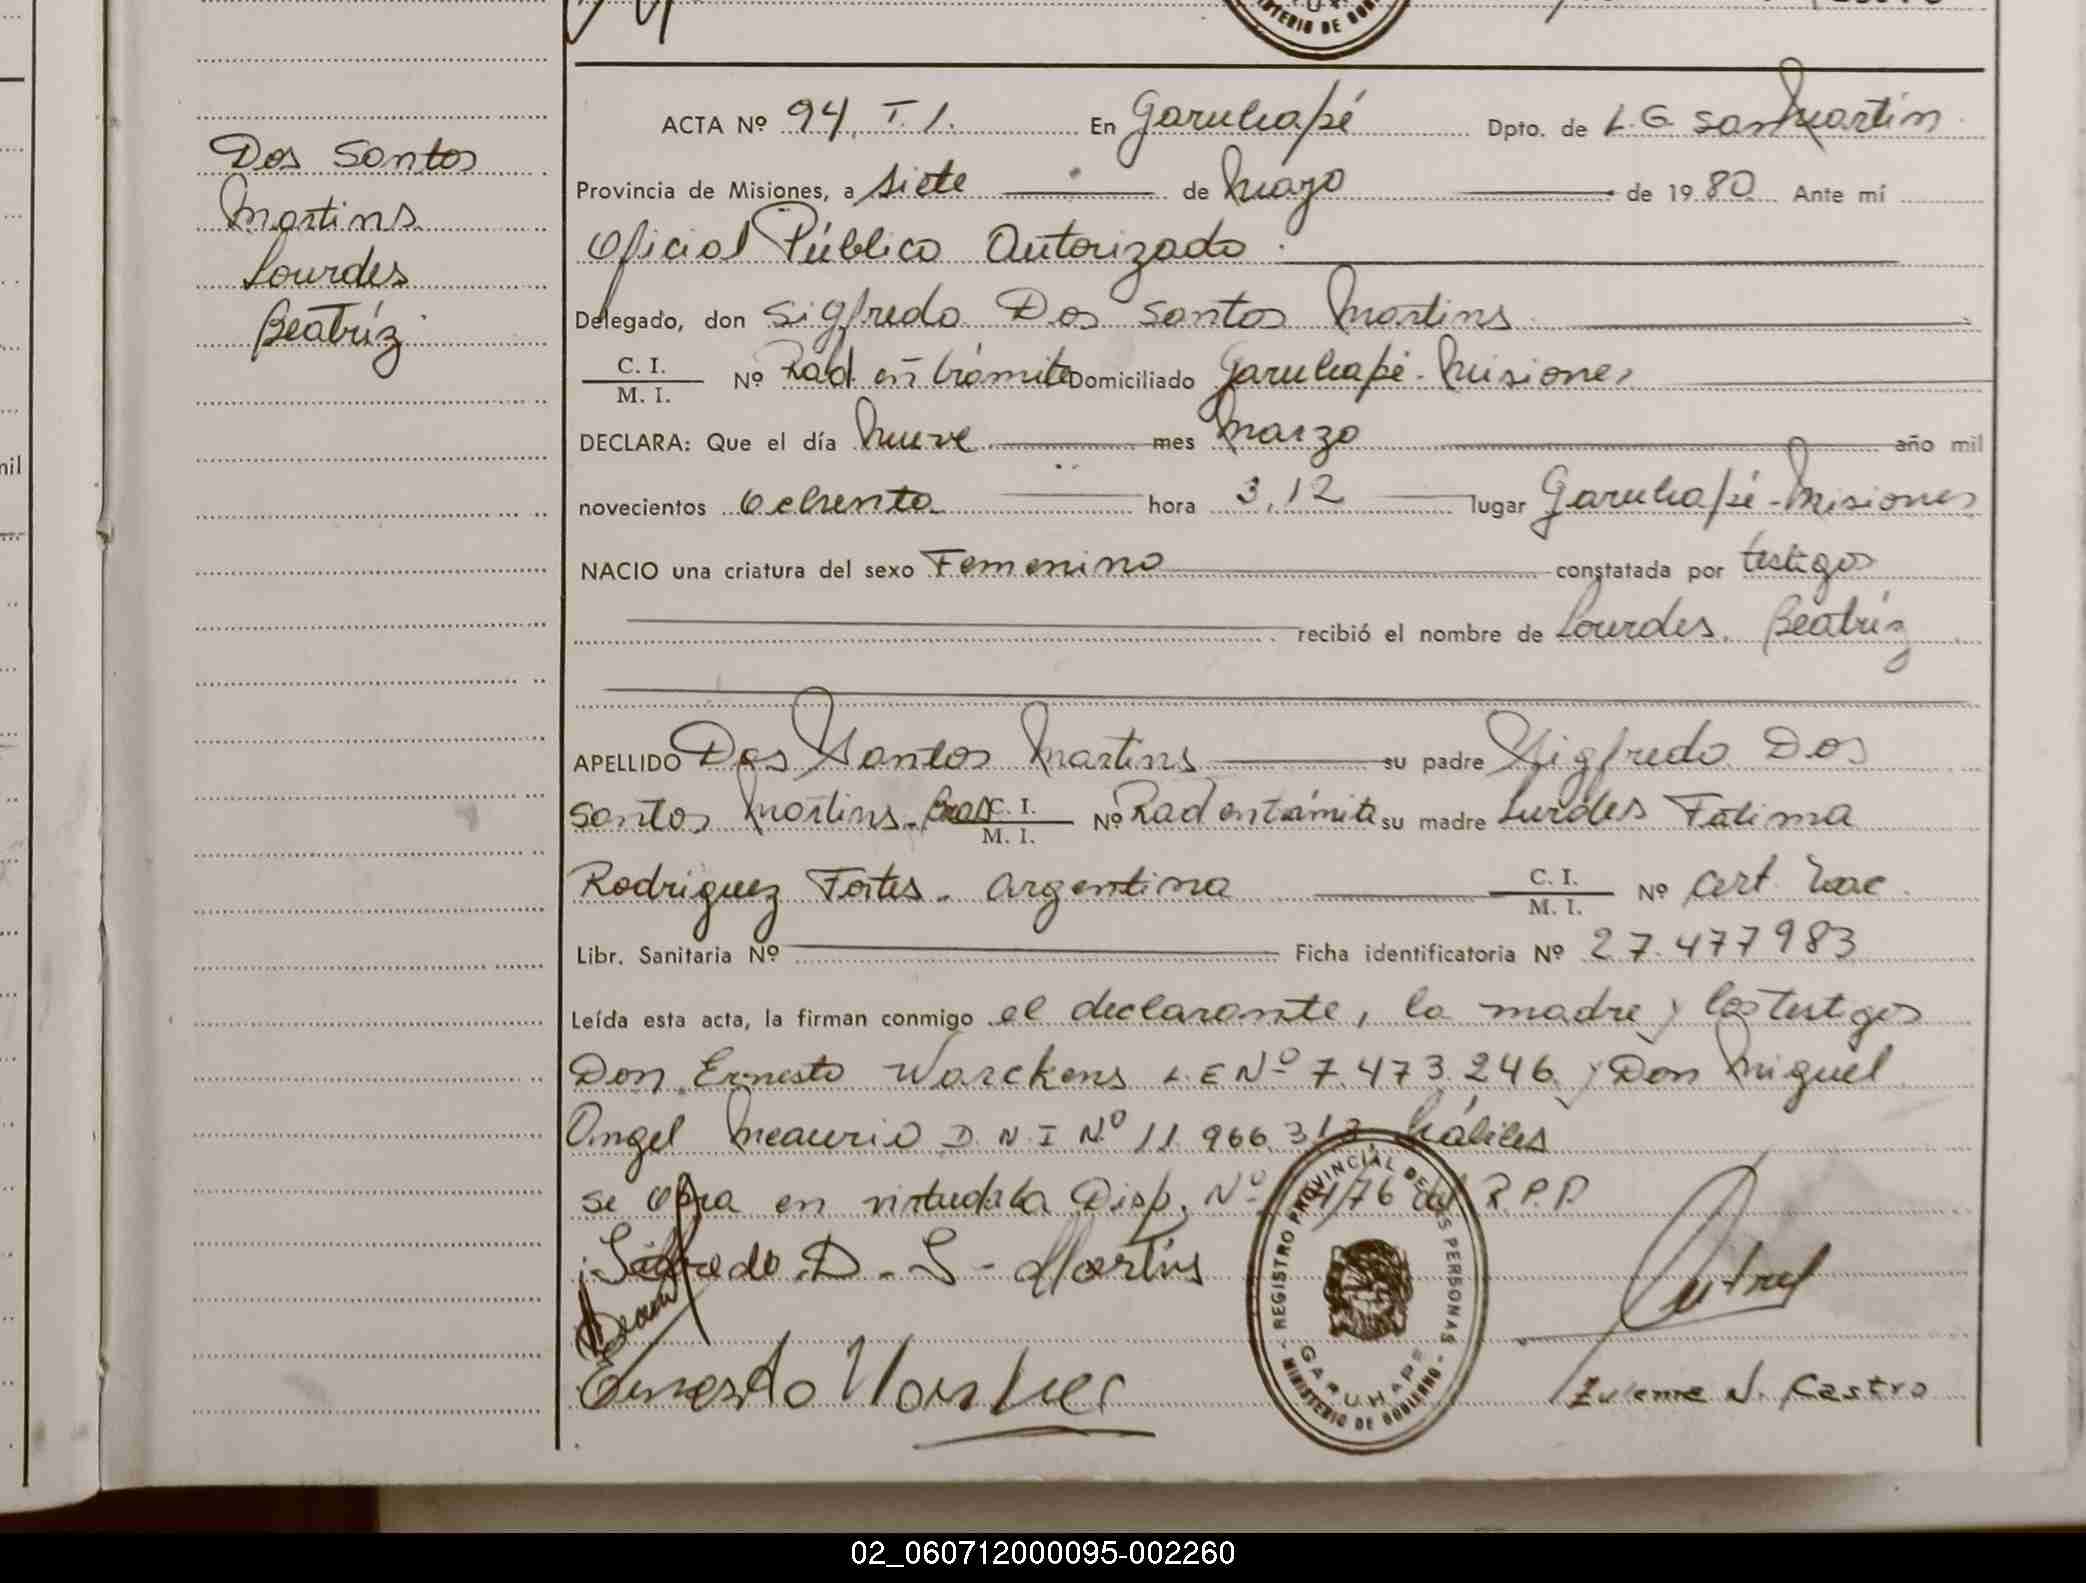 Dos Santos
Martins
Lourdes
Beatríz
ACTA Nº 94. T. 1. En Garuhapé Dpto. de L. G. San Martín
Provincia de Misiones, a siete de mayo de 1980. Ante mí
Oficial Público Autorizado
Delegado, don Sigfredo Dos Santos Martins
C. I.
M. I. Nº Rad. en trámite Domiciliado Garuhapé - Misiones
DECLARA: Que el día nueve mes marzo año mil
novecientos ochenta hora 3,12 lugar Garuhapé - Misiones
NACIO una criatura del sexo Femenino constatada por testigos
recibió el nombre de Lourdes Beatríz
APELLIDO Dos Santos Martins su padre Sigfredo Dos
Santos Martins - Bras C. I.
M. I. Nº Rad en trámite su madre Lurdes Fatima
Rodriguez Fortes - Argentina C. I.
M. I. Nº Cert. Nac.
Libr. Sanitaria Nº Ficha identificatoria Nº 27.477983
Leída esta acta, la firman conmigo el declarante, la madre y los testigos
Don Ernesto Warckens L E Nº 7.473.246 y Don Miguel
Angel Meaurio D. N. I Nº 11.966.313 hábiles
se obra en virtud de la Disp. Nº /76 del R.P.P
Sigfredo D - S - Martins
Ernesto
Castro
REGISTRO PROVINCIAL DE LAS PERSONAS
GARUHAPE
MINISTERIO DE GOBIERNO
02_060712000095-002260